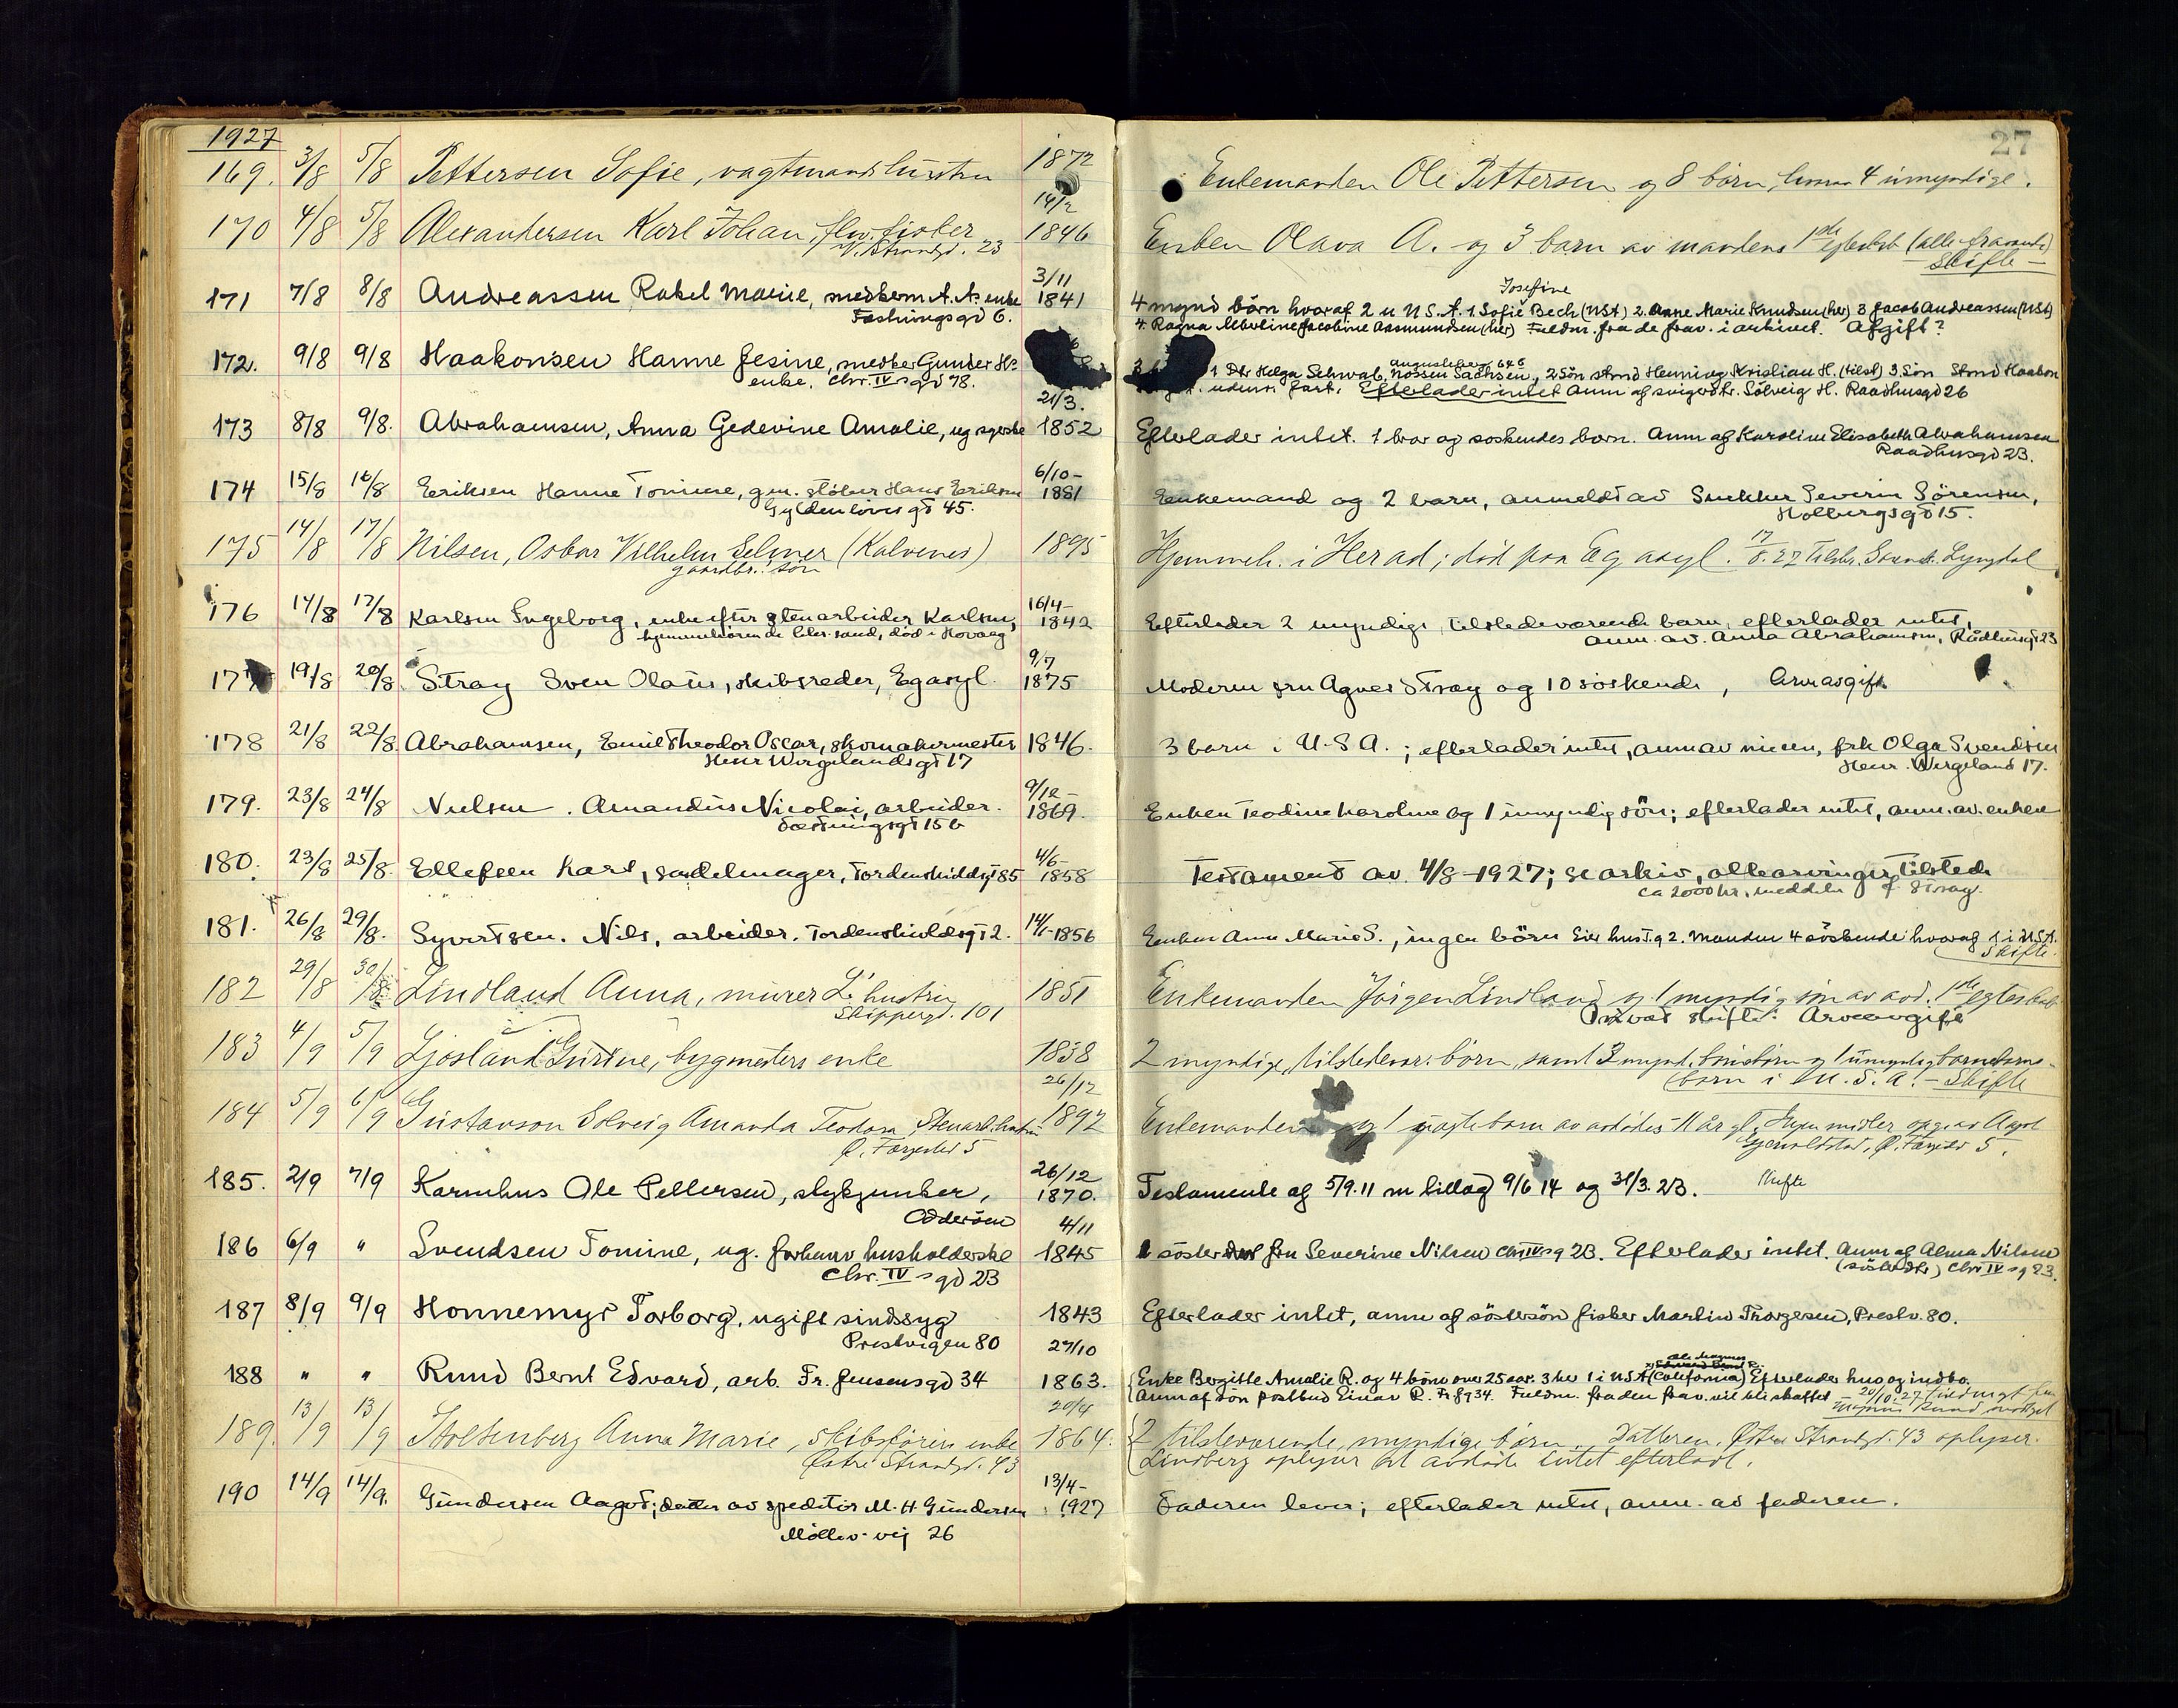 1927
27
169. 3/8 5/8 Pettersen Sofie, vagtmands hustru 1872 Enkemanden Ole Pettersen og 8 børn, hvorav 4 umyndige.
170 4/8 5/8 Alexandersen Karl Johan, fhv. fisker 14/2 1846 Enken Olava A. og 3 barn av mandens 1ste egteskab (alle fraværende)
V. Strandgt. 23 Skifte
171 7/8 8/8 Andreassen Rakel Marie, snedkerm A. As enke 3/11 1841 4 mynd børn hvoraf 2 u U S A. 1. Sofie Josefine Bech (USA) 2. Anne Marie Knudsen (her) 3 Jacob Andreassen (USA)
Festningsgd 6. 4. Ragna Jacobine Aasmundsen (her) Fuldm. fra de frav. i arkivet. Afgift?
172. 9/8 9/8 Haakonsen Hanne Jesine, snedker Gunder Hs 1 Dtr Helga Schwab, Nossen Sachsen, 2 Sön strmd Henning Kristian H. (tilst) 3. Sön Strmd Haakon
enke, Chr. IV s gd 78. udenr. fart. Efterlader intet Anm af svigerdtr. Sölveig H. Raadhusgd 26
173 8/8 9/8. Abrahamsen, Anna Gedevine Amalie, ug syerske 21/3. 1852 Efterlader intet. 1 bror og søskendes barn. Anm af Karoline Elisabeth Abrahamsen
Raadhusgd 23.
174 15/8 16/8 Eriksen Hanne Tomine, gm. støber Hans Eriksen 6/10- 1881 Enkemand og 2 barn, anmeldt av Snekker Severin Sörensen,
Gyldenløves gt 45. Holbergsgd 15.
175 14/8 17/8 Nilsen, Oskar Vilhelm Selmer (Kalvenes) 1895 Hjemmeh. i Herad; død paa Eg asyl. 17/8. 27 Tilskr. Sorensk. Lyngdal
gaardbr. søn
176 14/8 17/8 Karlsen Ingeborg, enke efter stenarbeider Karlsen, 16/4- 1842 Efterlader 2 myndige tilstedeværende barn, efterlader intet,
hjemmehörende Lillesand, död i Hövaag anm. av. Anna Abrahamsen, Rådhusgt 23
177 19/8 20/8. Stray Sven Olaus, skibsreder, Eg asyl 9/7 1875 Moderen fru Agnes Stray og 10 søskende, Arveavgift
178 21/8 22/8. Abrahamsen, Emil Theodor Oscar, skomakermester 1846. 3 barn i U.S.A.; efterlader intet, anm av niecen, frk Olga Svendsen
Henr Wergelandsgt 17 Henr. Wergeland 17.
179. 23/8 24/8 Nielsen. Amandus Nicolai, arbeider. 9/12- 1869. Enken Teodine Karoline og 1 umyndig sön; efterlader intet, anm. av. enken
Festningsgt 15 b
180. 23/8 25/8. Ellefsen Karl, sadelmager, Tordenskioldsgt 85 4/6- 1858 Testament av 4/8-1927; se arkiv, alle arvinger tilstede
ca 2000 kr, meddelt Stray.
181. 26/8 29/8. Syvertsen. Nils, arbeider. Tordenskioldsgt 2. 14/1-1856 Enken Anna Marie S., ingen börn Manden 4 söskende hvoraf 1 i USA.
Skifte.
182 29/8 30/8 Lindland Anna, murer L. hustru 1851 Enkemanden Jörgen Lindland og 1 myndig søn av avd. 1ste egteskab
Skippergt. 101 Privat skifte. Arveavgift
183 4/9 5/9 Ljosland Gurine, bygmesters enke 1838 2 myndige, tilstedevær. børn, samt 3 mynd. barnebørn og 1 umyndig barnebarns-
barn i U. S. A. - Skifte
184 5/9 6/9 Gustavson Solveig Amanda Teodora, Stenarb. hustru 26/12 1892 Enkemanden og 1 uegte barn av avdøde 11 år gl. Ingen midler opg. av Aagot
Ø. Færgested 5 Ø. Færgested 5.
185. 2/9 7/9 Karenhus Ole Pettersen, stykjunker, 26/12 1870. Testamente af 5/9. 11 m tillæg 9/6 14 og 31/3. 23. Skifte
Odderöen
186 6/9 " Svendsen Tomine, ug. forhenv husholderske 4/11 1845 1 söster fru Severine Nilsen Chr IV s g 23. Efterlader intet. Anm af Alma Nilsen
Chr. IV s gd 23 (søsterdtr) Chr IV s g 23.
187 8/9 9/9 Honnemyr Torborg, ugift sindssyg 1843 Efterlader intet, anm af söstersön fisker Martin Thorgersen, Prestv. 80.
Prestvigen 80
188 " " Ruud Bernt Edvard, arb. Fr. Jensensgd 34 27/10 1863. Enke Bergitte Amalie R. og 4 börn over 25 aar. 3 her 1 i USA (California) Efterlader hus og indbo.
Anm af sön postbud Einar R. Fr J g 34. Fuldm. fra den frav. vil bli skaffet - 20/10. 27 fuldmagt fra
Magnus Ruud mottat
189. 13/9 13/9 Stoltenberg Anna Marie, skibsførers enke 20/4 1864. 2 tilsteværende, myndige børn. Datteren, Østre Strandgt. 43 oplyser.
Østre Strandgt. 43 Lindberg oplyser at avdøde intet efterlod.
190 14/9 14/9. Gundersen Aagot; datter av speditör M. H Gundersen 13/4- 1927 Faderen lever; efterlader intet, anm. av faderen.
Möllev-vej 26